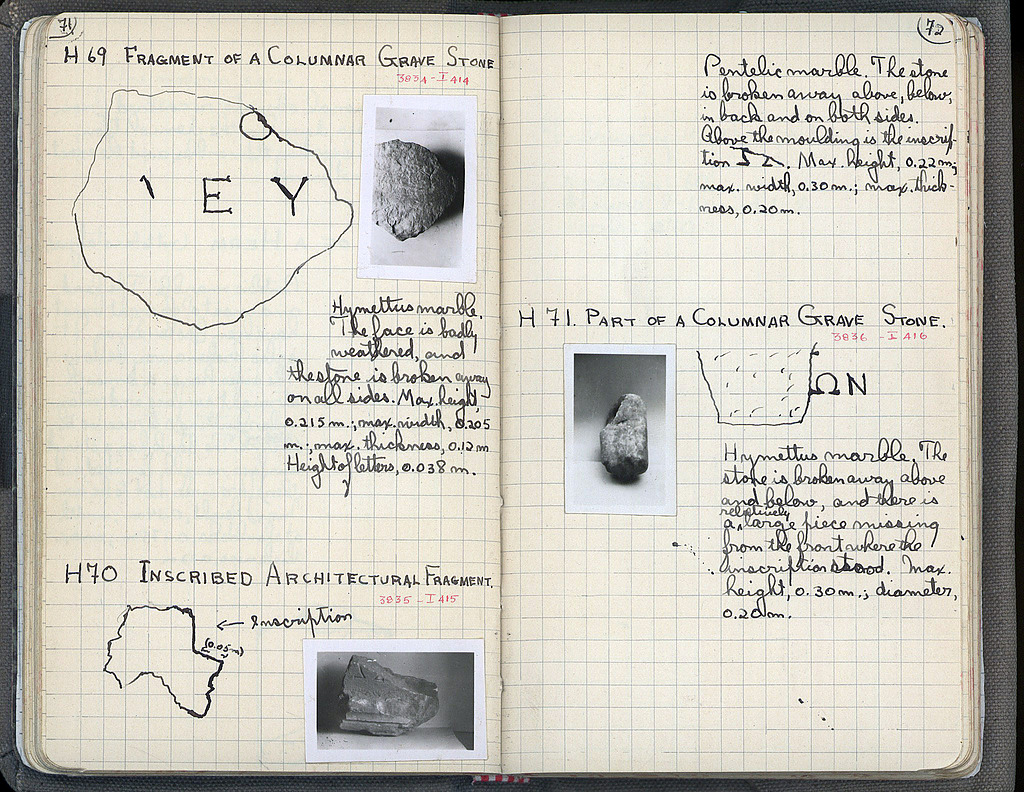 71
H 69 FRAGMENT OF A COLUMNAR GRAVE STONE
3834 - I 414
Ε Υ
Hymettus marble.
The face is badly
weathered, and
the stone is broken away
on all sides. Max. height,
0.215 m.; max. width, 0.205
m.; max. thickness, 0.12 m
Height of letters, 0.038 m.
H 70 INSCRIBED ARCHITECTURAL FRAGMENT.
3835 - I 415
← inscription
(0.05 m)
72
Pentelic marble. The stone
is broken away above, below,
in back and on both sides.
Above the moulding is the inscrip-
tion . Max. height, 0.22 m;
max. width, 0.30 m.; max. thick-
ness, 0.20 m.
H 71. PART OF A COLUMNAR GRAVE STONE.
3836 - I 416
ΩΝ
Hymettus marble. The
stone is broken away above
and below, and there is
a relatively large piece missing
from the front where the
inscription stood. Max.
height, 0.30 m.; diameter,
0.20 m.